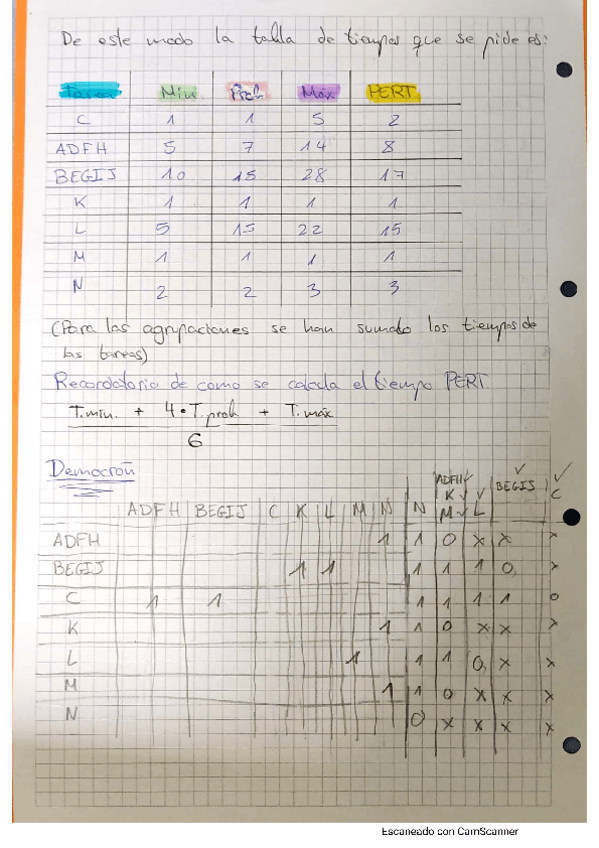 De este modo la tabla de tiempos que se pide es:
Tarea Min Prob Máx PERT
C 1 1 5 2
ADFH 5 7 14 8
BEGIJ 10 15 28 17
K 1 1 1 1
L 5 15 22 15
M 1 1 1 1
N 2 2 3 3
(Para las agrupaciones se han sumado los tiempos de
las tareas)
Recordatorio de como se calcula el tiempo PERT.
T.min. + 4 • T.prob + T.máx
6
Democron
ADFH BEGIJ C K L M N N ADFH✓ K✓ M✓ ✓ L ✓ BEGIJ ✓ C
ADFH 1 1 0 x x x
BEGIJ 1 1 1 1 1 0 x
C 1 1 1 1 1 1 0
K 1 1 0 x x x
L 1 1 1 0 x x
M 1 1 0 x x x
N 0 x x x x
Escaneado con CamScanner